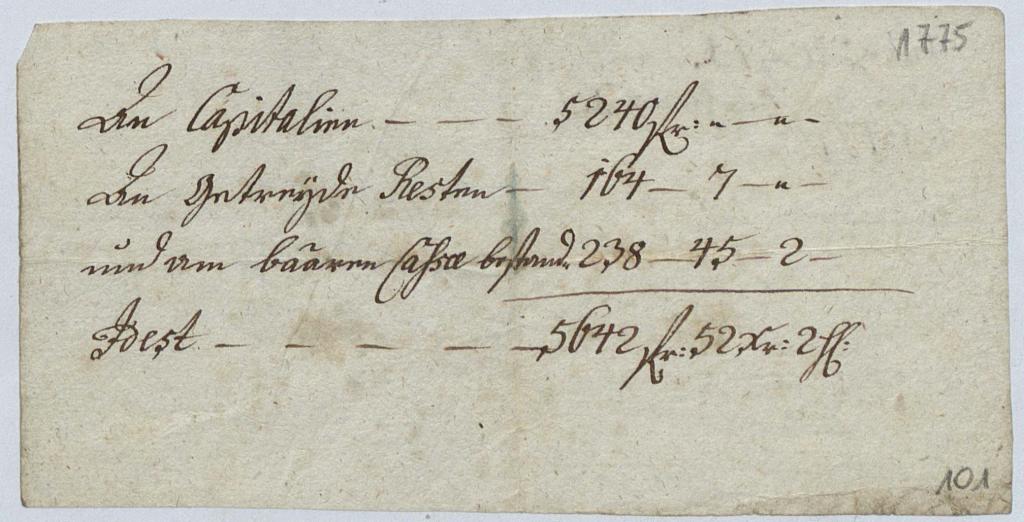 1775
An Capitalien — — — 5240 fr: „ — „ —
An Getreyde Resten — 164 — 7 — „ —
und am bäaren Cassæ bestand. 238 — 45 — 2 —
Idest — — — — — 5642 fr: 52 Xr: 2 hl:
101